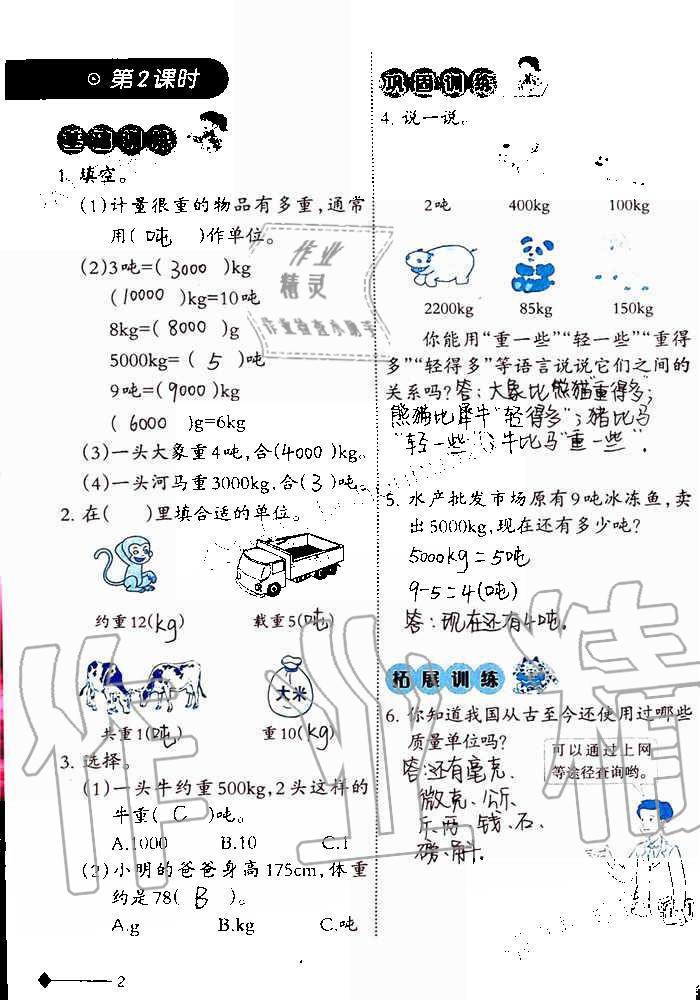 第2课时
基础训练
1. 填空。
(1)计量很重的物品有多重,通常
用( 吨 )作单位。
(2)3吨=( 3000 )kg
( 10000 )kg=10吨
8kg=( 8000 )g
5000kg=( 5 )吨
9吨=( 9000 )kg
( 6000 )g=6kg
(3)一头大象重4吨,合( 4000 )kg。
(4)一头河马重3000kg,合( 3 )吨。
2. 在( )里填合适的单位。
约重12(kg) 载重5(吨)
大米
共重1(吨) 重10(kg)
3. 选择。
(1)一头牛约重500kg,2头这样的
牛重( C )吨。
A.1000 B.10 C.1
(2)小明的爸爸身高175cm,体重
约是78( B )。
A.g B.kg C.吨
2
巩固训练
4. 说一说。
2吨 400kg 100kg
2200kg 85kg 150kg
你能用“重一些”“轻一些”“重得
多”“轻得多”等语言说说它们之间的
关系吗?答:大象比熊猫“重得多”;
熊猫比犀牛“轻得多”;猪比马
“轻一些”;牛比马“重一些”.
5. 水产批发市场原有9吨冰冻鱼,卖
出5000kg,现在还有多少吨?
5000kg=5吨
9-5=4(吨)
答:现在还有4吨.
拓展训练
6. 你知道我国从古至今还使用过哪些
质量单位吗?
可以通过上网
等途径查询哟。
答:还有毫克、
微克、公斤、
斤、两、钱、石、
磅、斛.
作业
精灵
作业检查小助手
作业精